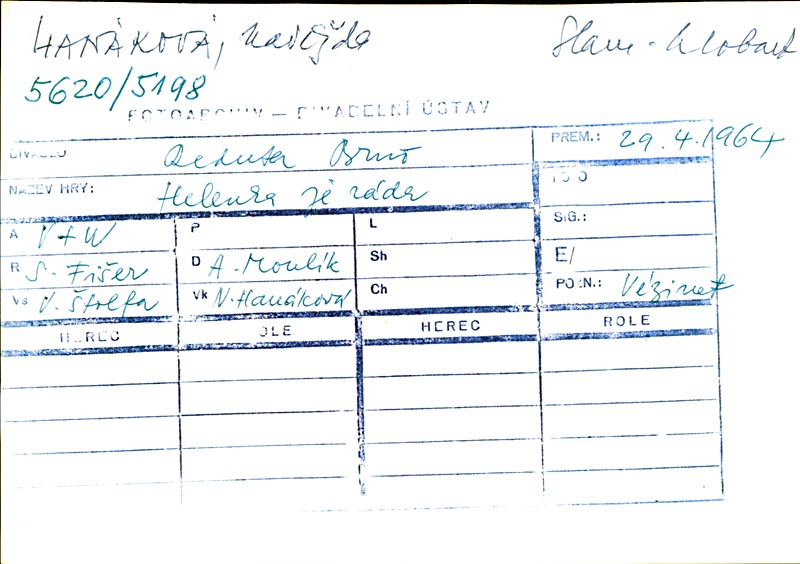 HANÁKOVÁ, Naděžda
Slam. - klobouk
5620/5198
FOTOARCHIV — DIVADELNÍ ÚSTAV
DIVADLO Reduta Brno
PREM.: 29.4.1964
NÁZEV HRY: Helenka je ráda
FOTO
A V+W P L SIG.:
R S. Fišer D A. Moulík Sh E/
Vs V. Štolfa Vk N. Hanáková Ch POZN.: Vézinet
HEREC ROLE HEREC ROLE